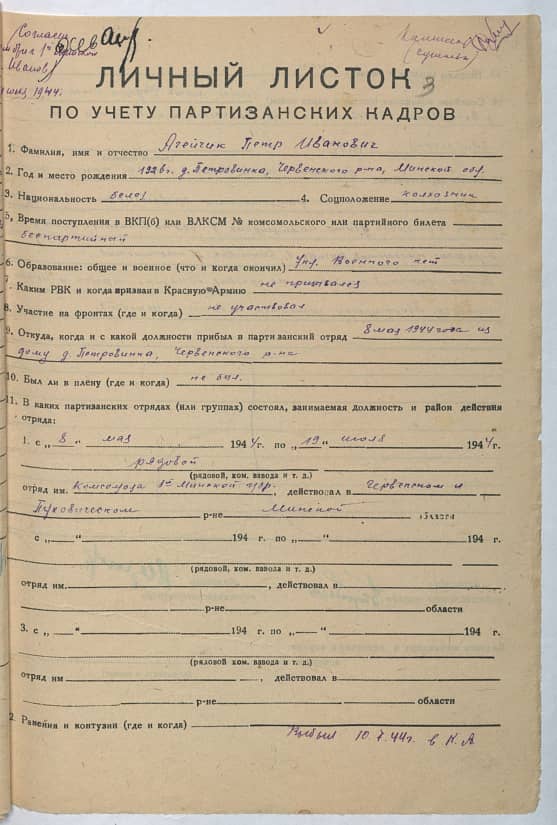 Согласен
Иванов
1944г.
ЛИЧНЫЙ ЛИСТОК
3
ПО УЧЕТУ ПАРТИЗАНСКИХ КАДРОВ
1. Фамилия, имя и отчество Агейчик Петр Иванович
2. Год и место рождения 1926г. д. Петровинка, Червенского р-на, Минской обл.
3. Национальность белор 4. Соцположение колхозник
5. Время поступления в ВКП(б) или ВЛКСМ № комсомольского или партийного билета
беспартийный
6. Образование: общее и военное (что и когда окончил) Военного нет
7. Каким РВК и когда призван в Красную Армию не призывался
8. Участие на фронтах (где и когда) не участвовал
9. Откуда, когда и с какой должности прибыл в партизанский отряд 8 мая 1944 года из
дому д. Петровинка, Червенского р-на
10. Был ли в плену (где и когда) не был.
11. В каких партизанских отрядах (или группах) состоял, занимаемая должность и район действия
отряда:
1. с „ 8 " мая 1944 г. по „ 19 " июля 1944 г.
рядовой
(рядовой, ком. взвода и т. д.)
отряд им. Комсомола 1й Минской п/бр. , действовал в Червенском и
Пуховическом р-не Минской области
с „ " 194 г. по „ " 194 г.
(рядовой, ком. взвода и т. д.)
отряд им. , действовал в
р-не области
3. с „ " 194 г. по „ " 194 г.
(рядовой ком. взвода и т. д.)
отряд им , действовал в
р-не области
2. Ранения и контузии (где и когда)
Выбыл 10.7.44г. в К.А